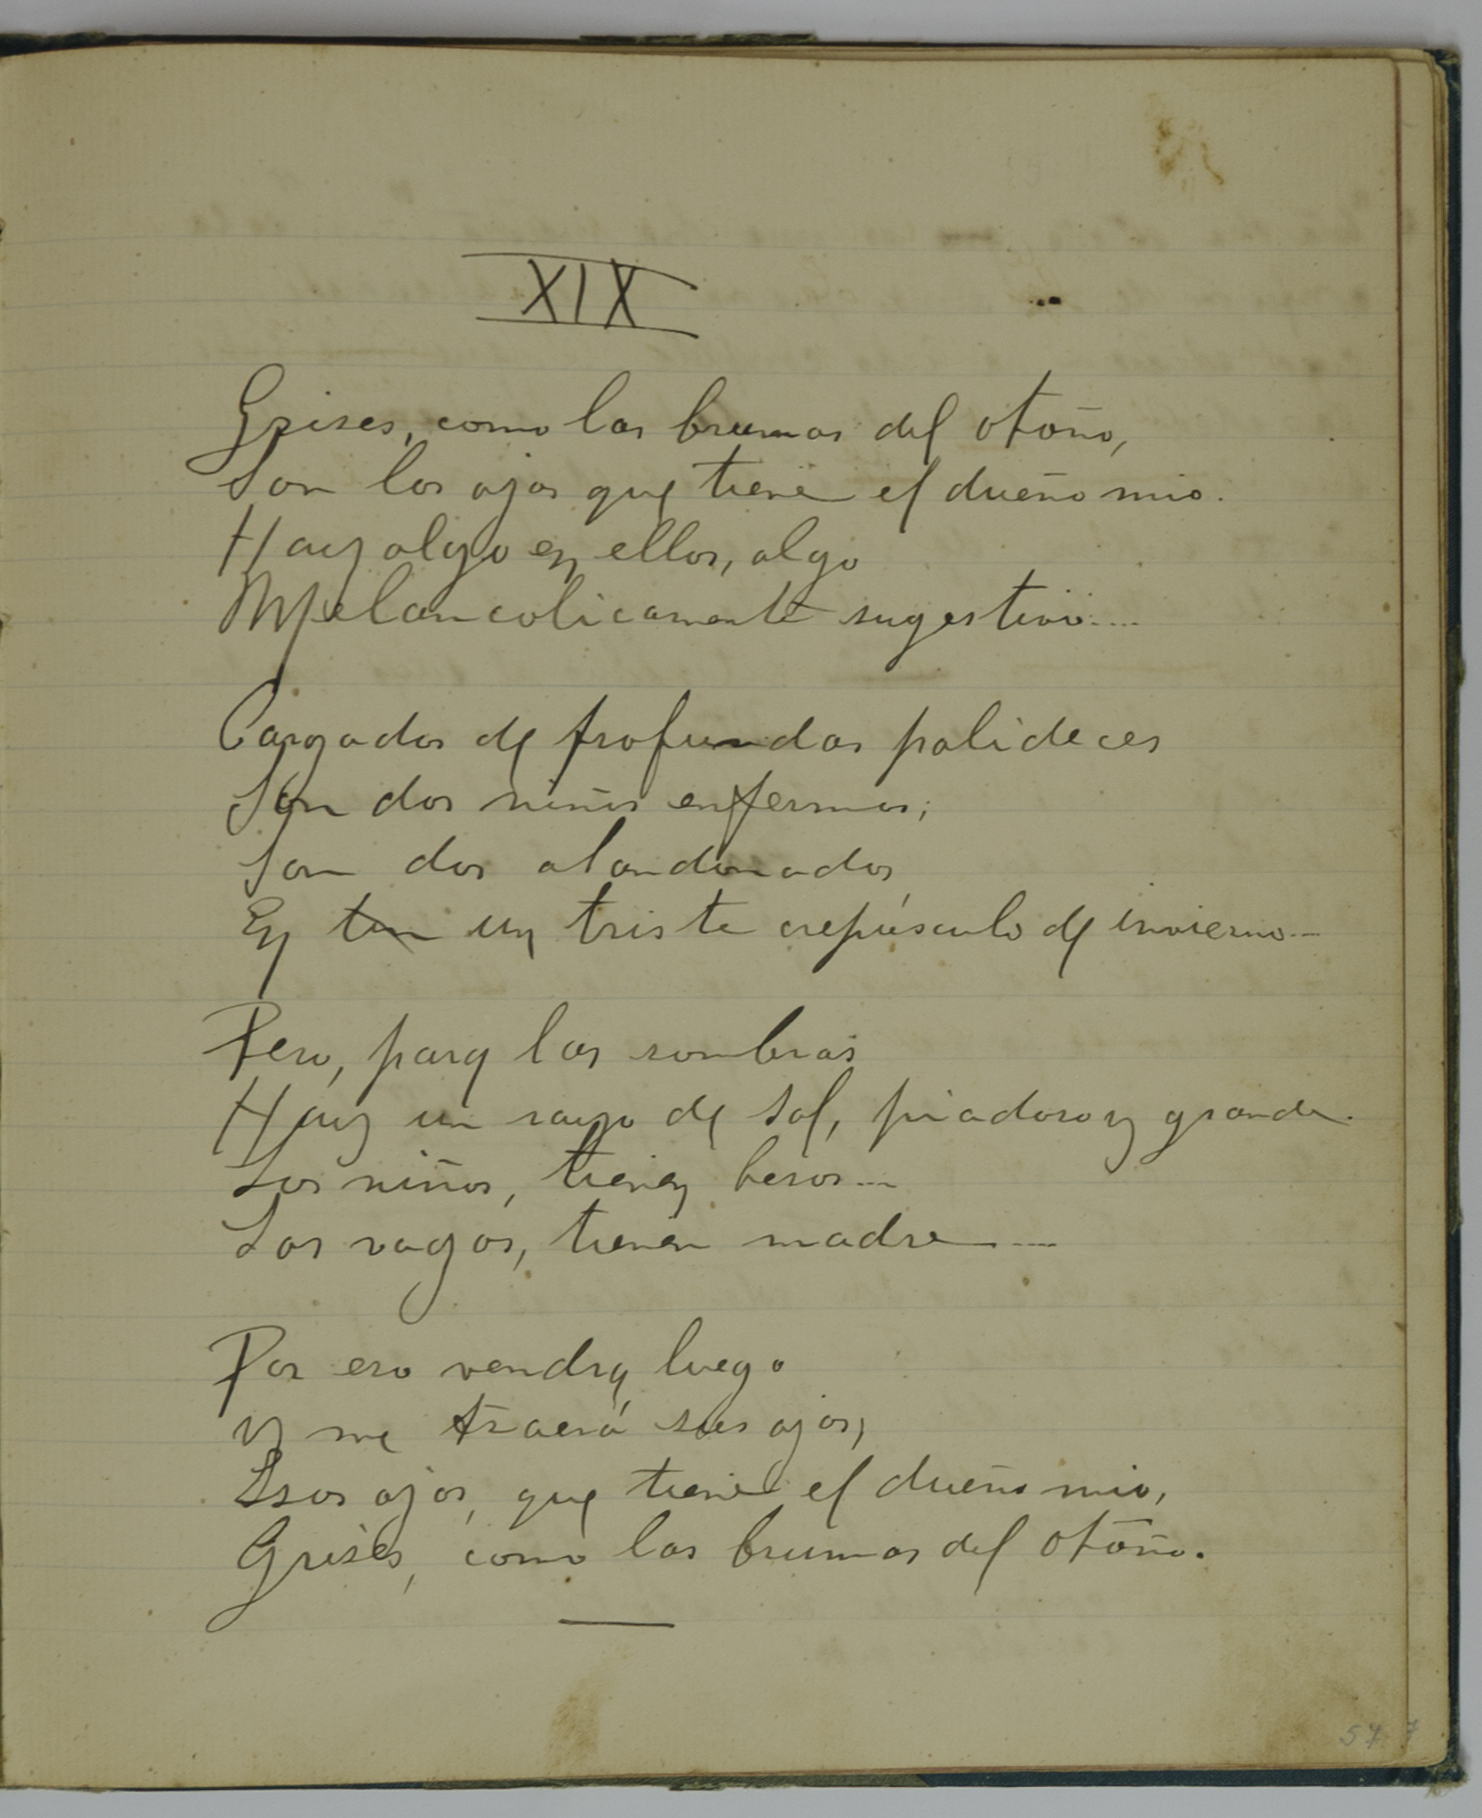 XIX
Grises, como las brumas del otoño,
Son los ojos que tiene el dueño mio.
Hay algo en ellos, algo
Melancolicamente sugestivo....
Cargados de profundas palideces
Son dos niños enfermos;
Son dos abandonados,
En un triste crepúsculo de invierno...
Pero, para las sombras
Hay un rayo de sol, piadoso y grande.
Los niños, tienen besos...
Los vagos, tienen madre....
Por eso vendrá luego
Y me traerá sus ojos,
Esos ojos, que tiene el dueño mio,
Grises, como las brumas del otoño.
57